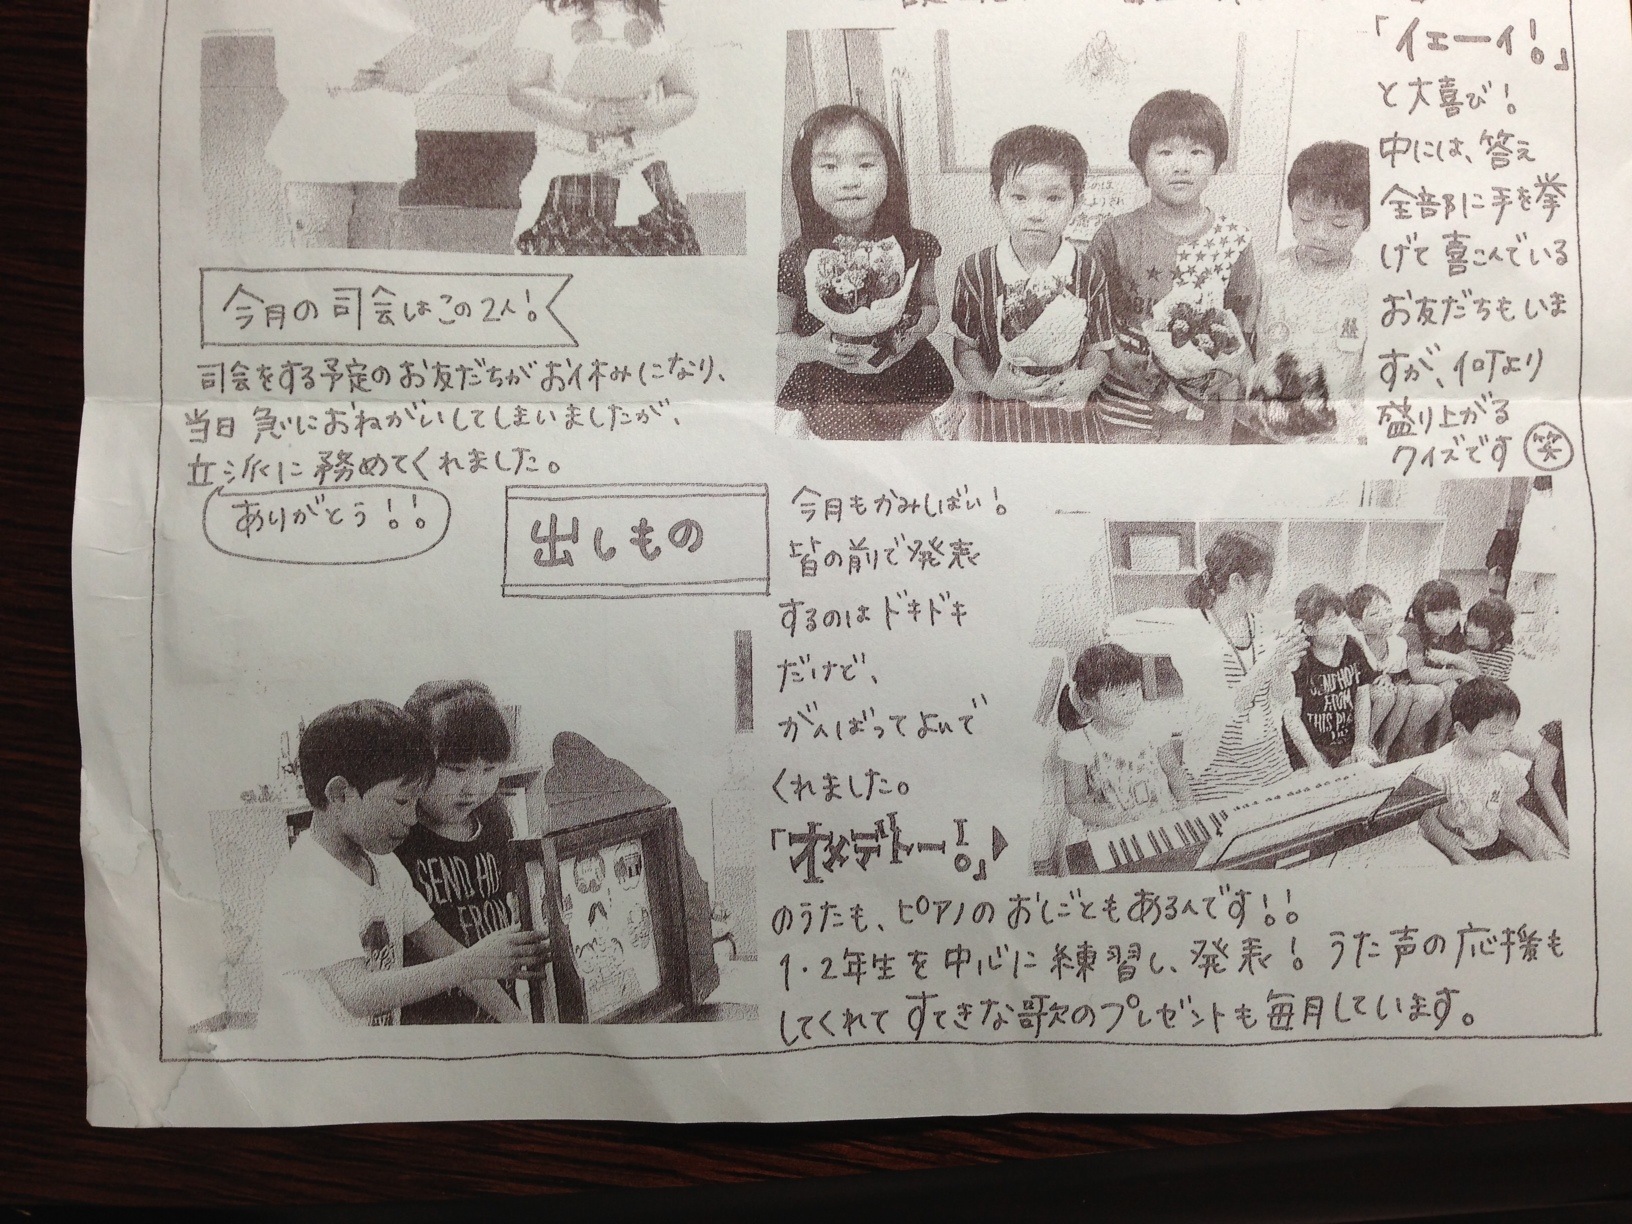 「イエーイ!」
と大喜び!
中には、答え
全部に手を挙
げて喜こんでいる
お友だちもいま
すが、何より
盛り上がる
クイズです 笑
今月の司会はこの2人!
司会をする予定のお友だちがお休みになり、
当日急におねがいしてしまいましたが、
立派に務めてくれました。
ありがとう!!
出しもの
今月もかみしばい!
皆の前で発表
するのはドキドキ
だけど、
がんばってよんで
くれました。
「オメデトー!」
のうたも、ピアノのおしごともあるんです!!
1・2年生を中心に練習し、発表! うた声の応援も
してくれてすてきな歌のプレゼントも毎月しています。
SEND HO
FROM
SEND HOPE
FROM
THIS